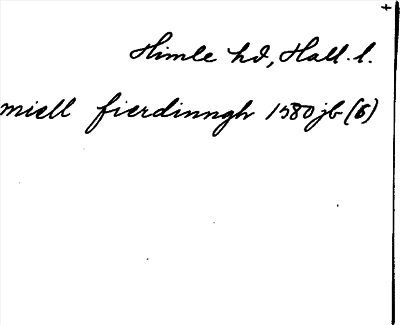 Himle hd, Hall. l.
miell fierdinngh 1580 jb (6)